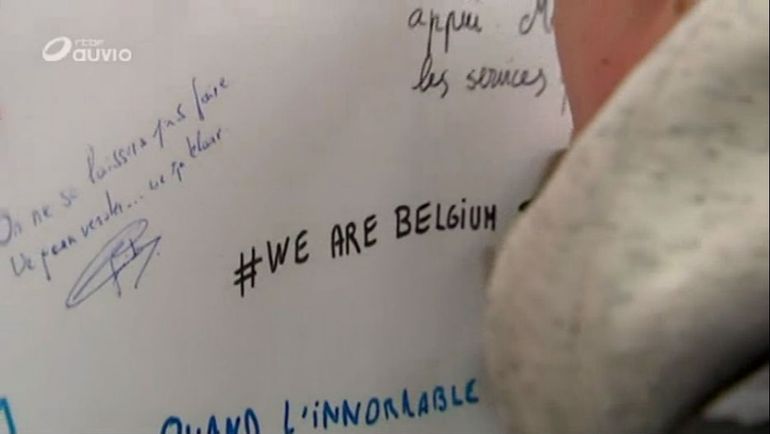 rtbf
auvio
appui
les services
On ne se laissera pas faire
#WE ARE BELGIUM
QUAND L'INNORRABLE